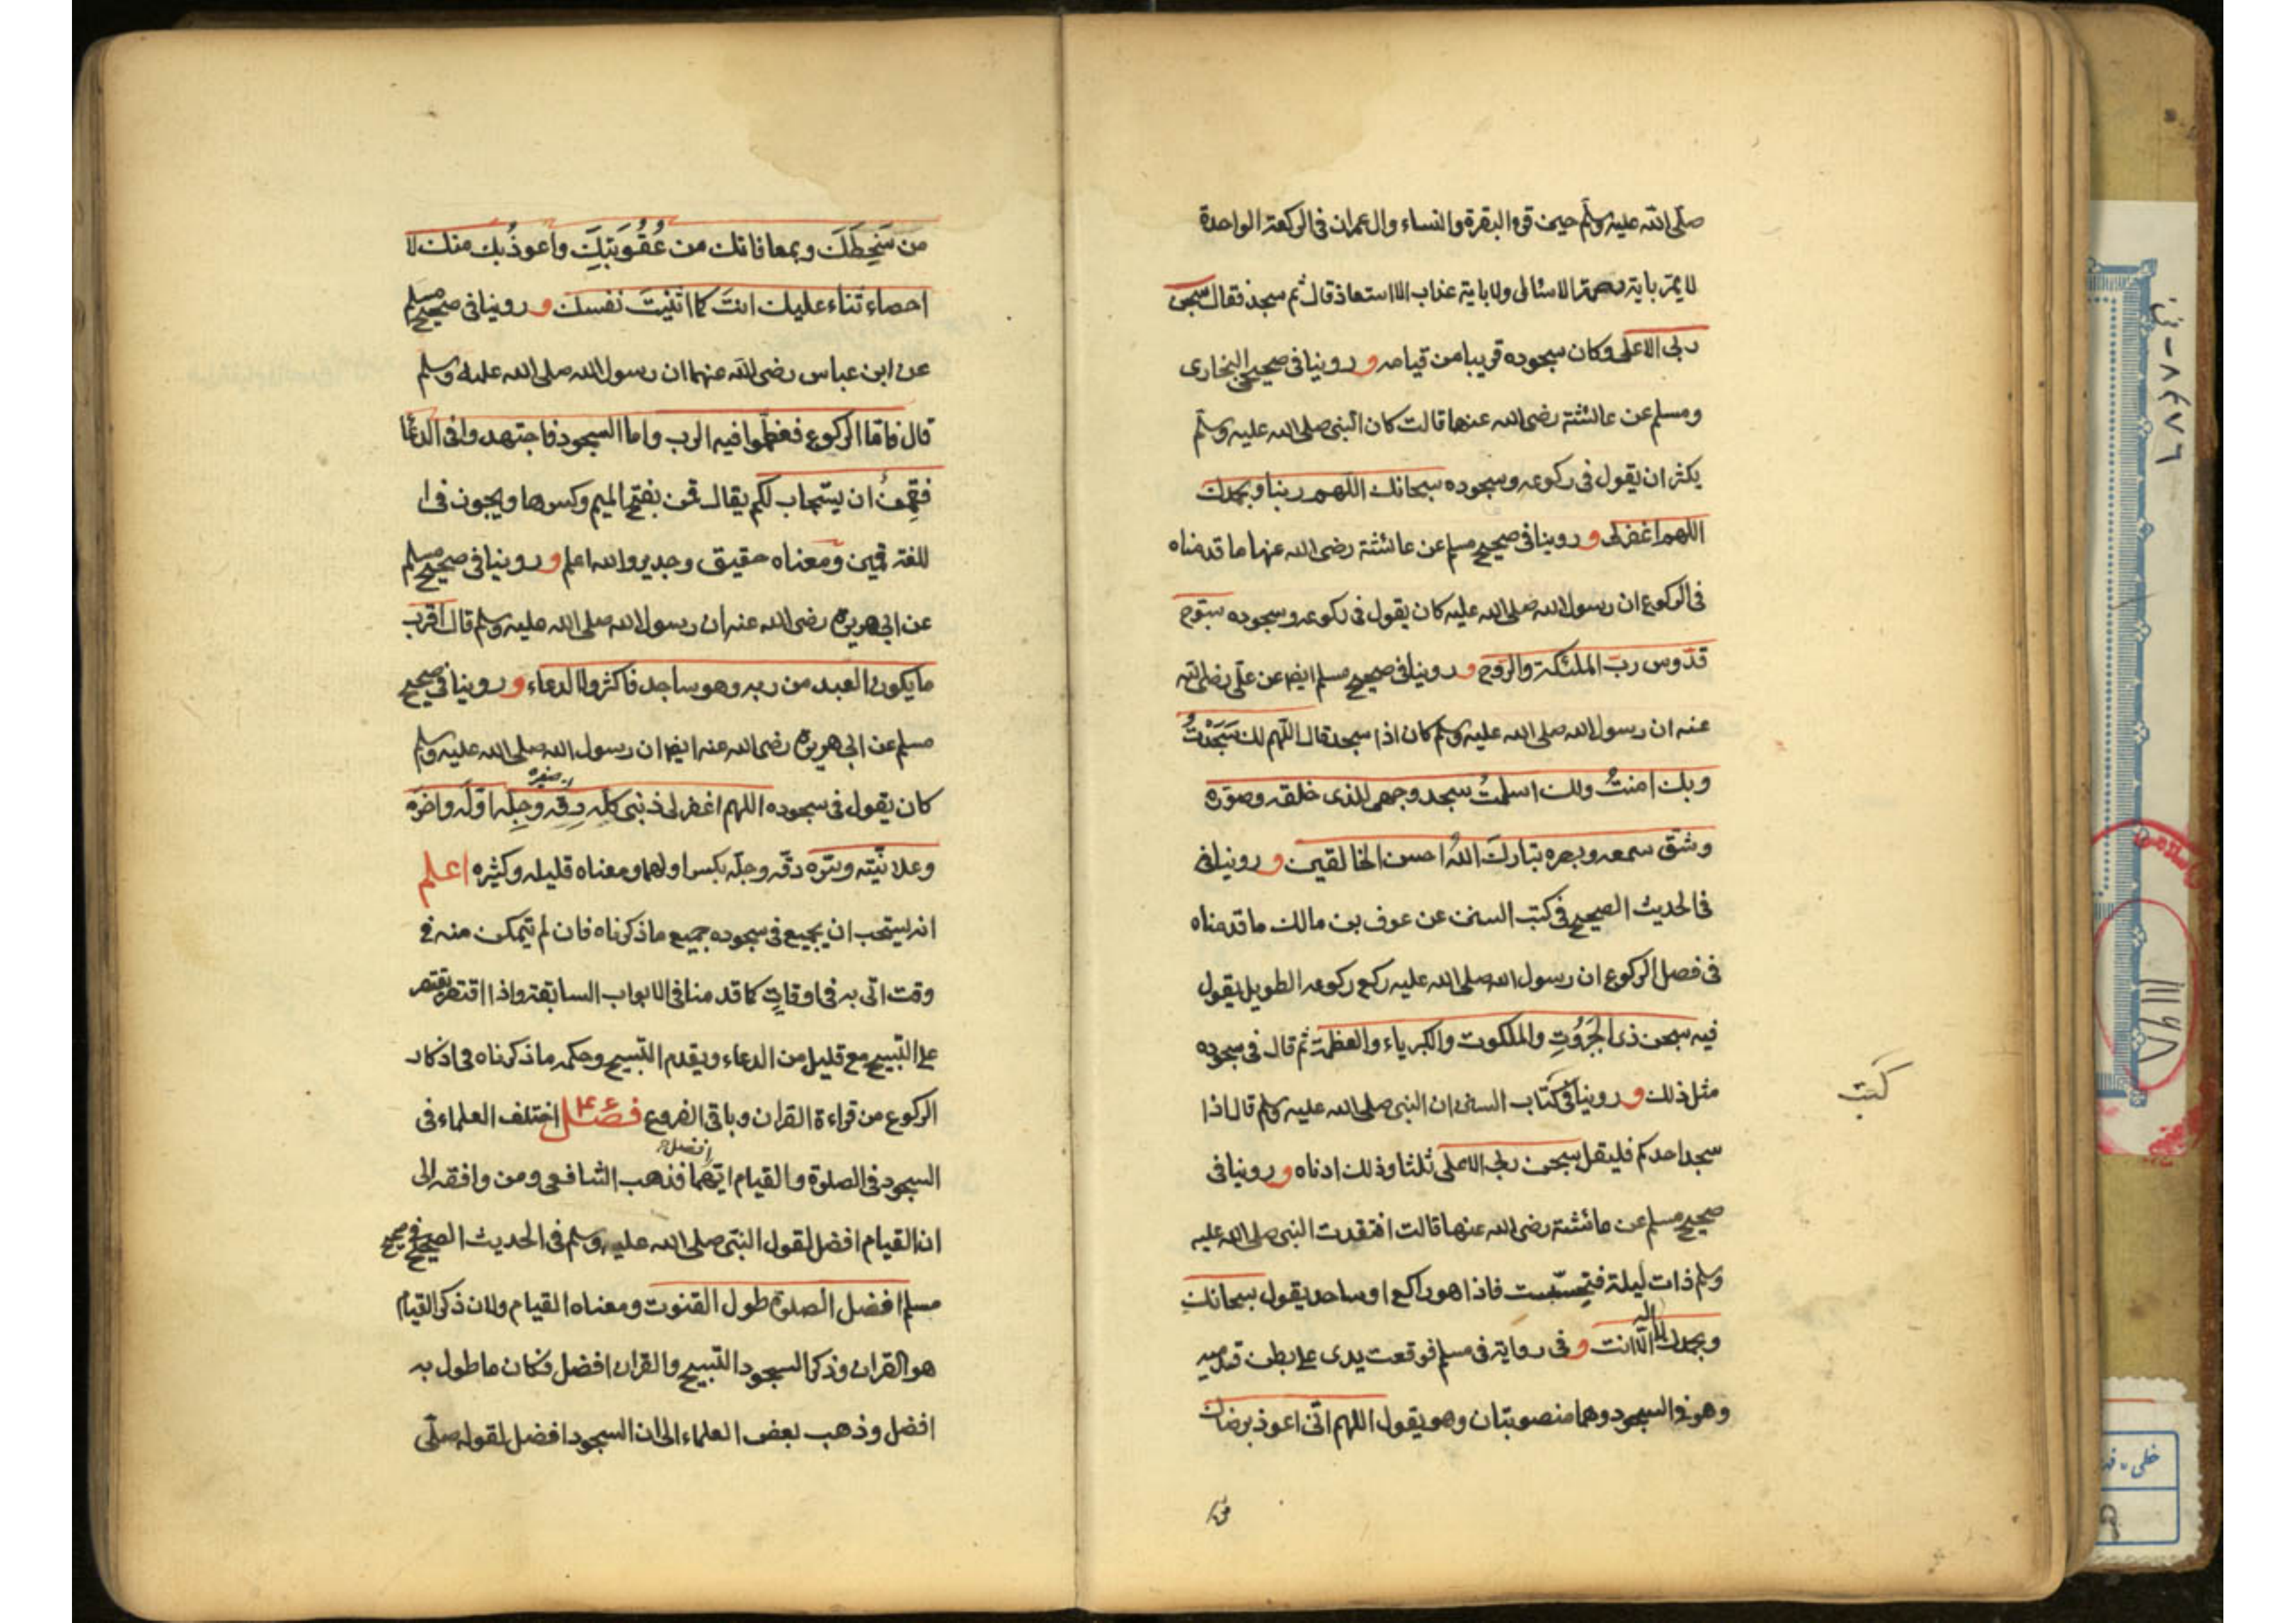 صلّى الله عليه وسلّم حين قرء البقرة والنساء وال عمران فى الركعة الواحدة
لا يمر باية رحمة الا سئال ولا باية عذاب الا استعاذ قال ثم سجد فقال سبحن
ربى الاعلى وكان سجوده قريبا من قيامه و روينا فى صحيح البخارى
ومسلم عن عائشة رضى الله عنها قالت كان النبى صلى الله عليه وسلّم
يكثر ان يقول فى ركوعه وسجوده سبحانك اللهم ربنا وبحمدك
اللهم اغفر لى و روينا فى صحيح مسلم عن عائشة رضى الله عنها ما قدمناه
فى الركوع ان رسول الله صلى الله عليه كان يقول فى ركوعه وسجوده سبّوح
قدّوس ربّ الملئكة والرّوح و روينا فى صحيح مسلم ايضا عن علّى رضى الله
عنه ان رسول الله صلى الله عليه وسلّم كان اذا سجد قال اللّهم لك سَجَدْتُ
وبك امنتُ ولك اسلمتُ سجد وجهى للذى خلقه وصوّره
وشقّ سمعه وبصره تبارك اللهُ احسن الخالقين و روينا فى
فى الحديث الصحيح فى كتب السنن عن عوف بن مالك ما قدمناه
فى فصل الركوع ان رسول الله صلى الله عليه ركع ركوعه الطويل يقول
فيه سبحن ذى الجَبَرُوتِ والملكوت والكبرياء والعظمة ثم قال فى سجوده
مثل ذلك و روينا فى كتاب السنن ان النبى صلى الله عليه وسلم قال اذا
كتب
سجد احدكم فليقل سبحن ربى الاعلى ثلثا وذلك ادناه و روينا فى
صحيح مسلم عن عائشة رضى الله عنها قالت افتقدت النبى صلى الله عليه
وسلم ذات ليلة فتحسّست فاذا هو راكع او ساجد يقول سبحانك
وبحمدك لا اله الّا انت و فى رواية فى مسلم فوقعت يدى على بطن قدميه
وهو فى السجود وهما منصوبتان وهو يقول اللهم انّى اعوذ برضاك
من
من سَخَطِكَ وبمعافاتك من عُقُوبَتِكَ واعوذُ بك منك لا
احصاء ثناء عليك انتَ كما اثنيتَ نفسك و روينا فى صحيح مسلم
عن ابن عباس رضى الله عنهما ان رسول الله صلى الله عليه وسلم
قال فامّا الركوع فعظّموا فيه الرب واما السجود فاجتهدوا فى الدعاء
فقَمِنُ ان يستجاب لكم يقال قمن بفتح الميم وكسرها ويجوز فى ا
للغة قمين ومعناه حقيق وجدير والله اعلم و روينا فى صحيح مسلم
عن ابى هريرة رضى الله عنه ان رسول الله صلى الله عليه وسلم قال اقرب
ما يكون العبد من ربه وهو ساجد فاكثروا الدعاء و روينا فى صحيح
مسلم عن ابى هريرة رضى الله عنه ايضا ان رسول الله صلى الله عليه وسلم
كان يقول فى سجوده اللهم اغفر لى ذنبى كلّه دِقّه وجِلّه اوّله واخره
وعلانيّته وسرّه دقّه وجلّه بكسر اولهما ومعناه قليله وكثيره اعلم
انه يستحب ان يجمع فى سجوده جميع ما ذكرناه فان لم يتمكن منه فى
وقت اتى به فى اوقاتٍ كما قدمنا فى الابواب السابقة واذا اقتصر يقتصر
على التسبيح مع قليل من الدعاء ويقدم التسبيح وحكمه ما ذكرناه فى اذكار
الركوع من قراءة القران وباقى الفروع فصل اختلف العلماء فى
السجود فى الصلوة والقيام ايّهما افضل فذهب الشافعى ومن وافقه الى
ان القيام افضل لقول النبّى صلى الله عليه وسلم فى الحديث الصحيح فى صحيح
مسلم افضل الصلوة طول القنوت ومعناه القيام ولان ذكر القيام
هو القران وذكر السجود التسبيح والقران افضل فكان ما طول به
افضل وذهب بعض العلماء الى ان السجود افضل لقوله صلّى